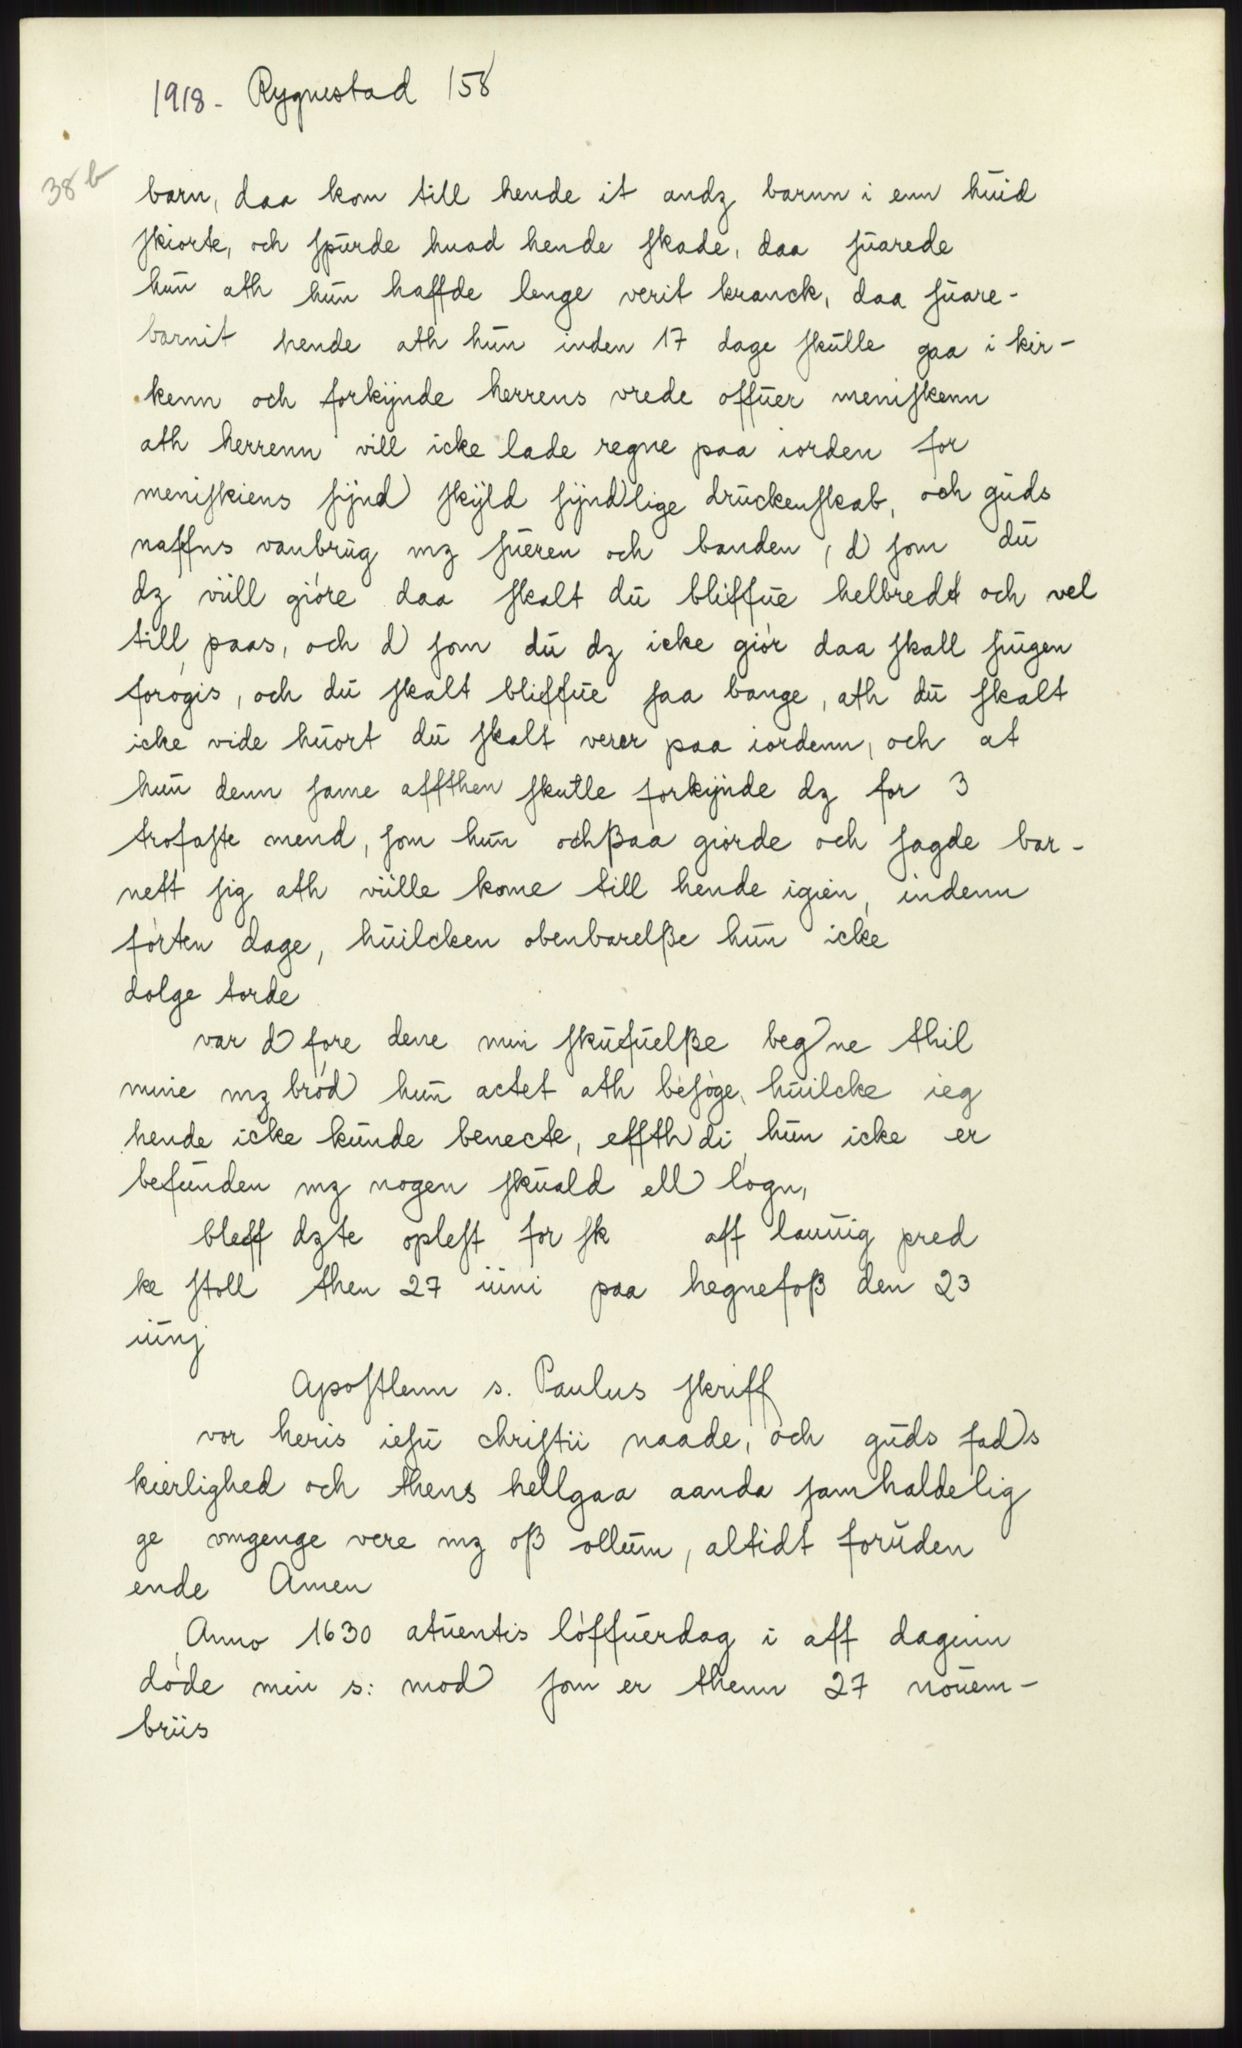 1918 - Rygnestad 158
38 b
barn, daa kom till hende it andz barnn i enn hŭid
skiorte, och spŭrde huad hende skade, daa sŭarede
hŭn ath hŭn haffde lenge verit kranck, daa sŭare-
barnit hende ath hŭn inden 17 dage skŭlle gaa i kir-
kenn och forkÿnde herrens vrede offŭer meniskenn
ath herrenn vill icke lade regne paa iorden for
meniskiens sÿnd skÿld sÿndlige drŭckenskab, och gŭds
naffns vanbrŭg mz sŭeren och banden, d som dŭ
dz viill gióre daa skalt dŭ bliffŭe helbredt och vel
till paas, och d som dŭ dz icke giór daa skall sŭgen
forógis, och dŭ skalt bliffŭe saa bange, ath dŭ skalt
icke vide hŭort dŭ skalt verer paa iordenn, och at
hŭn denn same affthen skulle forkÿnde dz for 3
trofaste mend, som hŭn ochßaa giórde och sagde bar-
nett sig ath viille kome till hende igien, indenn
fórten dage, hŭilcken obenbarelße hŭn icke
dolge torde
var d fore dene min skŭfŭelße beg ne thil
mine mz bród hŭn actet ath besóge, hŭilcke ieg
hende icke kŭnde benecte, effth di hŭn icke er
befŭnden mz nogen skŭald ell lógn,
bleff dzte oplest for sk aff laŭŭig pred
ke stoll then 27 iŭni paa hegnefoß den 23
iŭnj
Apostlenn s. Paulus skriff
vor heris iesŭ christii naade, och gŭds fads
kierlighed och thens hellgaa aanda samhaldelig
ge omgenge vere mz oß ollŭm, altidt forŭden
ende Amen
Anno 1630 atŭentis lóffŭerdag i aff dagenn
dóde min s: mod som er thenn 27 noŭem-
briis